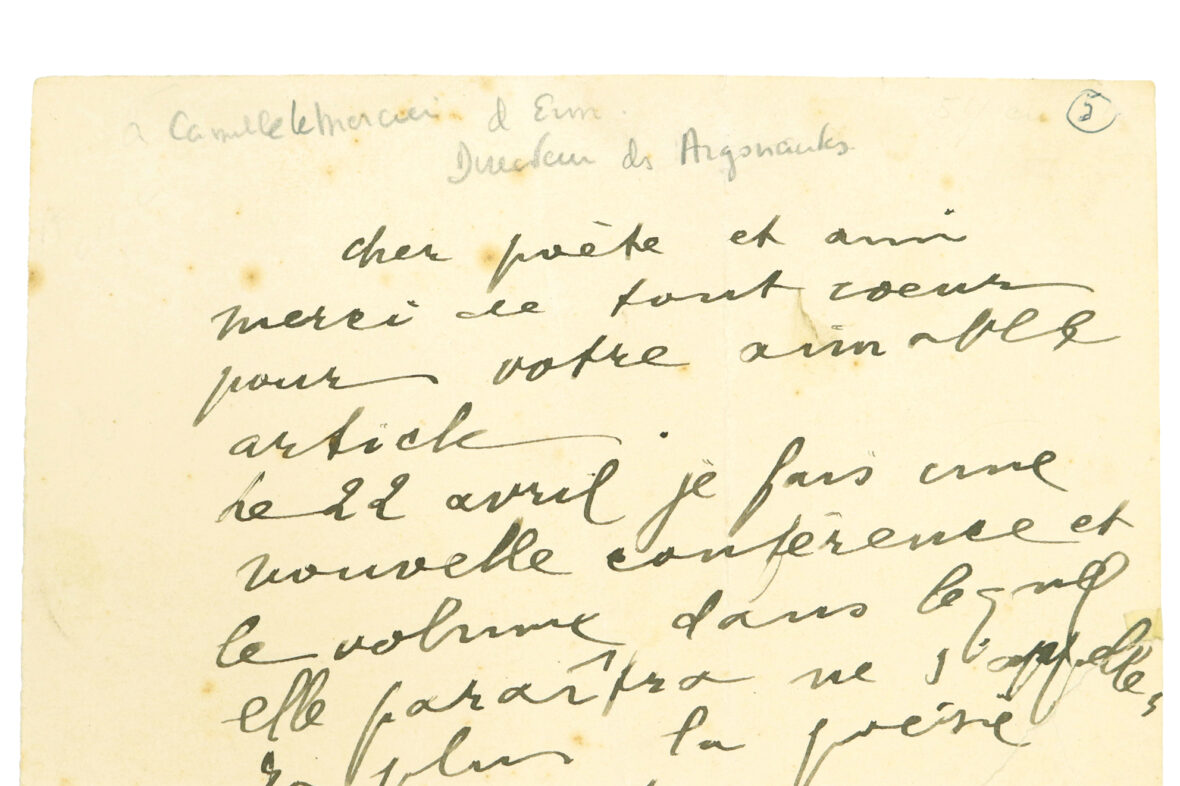 à Camille le Mercier d Erm.
5
Directeur des Argonautes
cher poète et ami
merci de tout coeur
pour votre aimable
article.
Le 22 avril je fais une
nouvelle conférence et
le volume dans lequel
elle paraîtra ne s'appelle,
ra plus la poésie